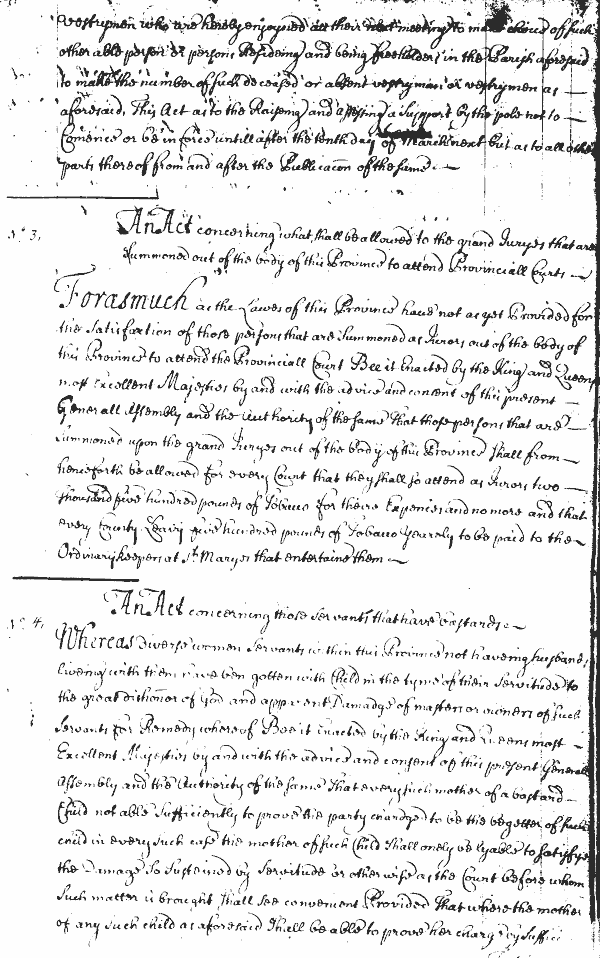 Vestrymen who are hereby enjoyned att their next meeting to make choice of such
other able person or persons Resideing and being freeholders in the Parish aforesaid
to make the number of such deceased or absent vestryman or vestrymen as
aforesaid, This Act as to the Raiseing and assessing a Support by the pole not to
Comence or be in force untill after the tenth day of March next but as to all other
parts thereof from and after the Publicacon of the same
No 3.
An Act concerning what shall be allowed to the grand Juryes that are
Summoned out of the body of this Province to attend Provinciall Courts
Forasmuch as the Lawes of this Province have not as yet Provided for
the Satisfaction of those persons that are Summoned as Jurors out of the body of
this Province to attend the Provinciall Court Bee it Enacted by the King and Queens
most Excellent Majesties by and with the advice and consent of this present
Generall Assembly and the Authority of the same That those persons that are
Summoned upon the grand Juryes out of the body of this Province shall from
henceforth be allowed for every Court that they shall so attend as Jurors two
thousand five hundred pounds of Tobacco for there Expences and no more and that
every County Leavy five hundred pounds of Tobacco yearely to be paid to the
Ordinary keepers at St Maryes that entertaine them
No 4.
An Act concerning those Servants that have bastards
Whereas diverse women Servants within this Province not haveing husbands
liveing with them have ben gotten with Child in the tyme of their Servitude to
the great dishonor of God and apparent Damadge of masters or owners of such
Servants for Remedy whereof Bee it Enacted by the King and Queens most
Excellent Majesties by and with the advice and consent of this present Generall
Assembly and the Authority of the same That every such mother of a bastard
Child not able Sufficiently to prove the party chardged to be the begetter of such
child in every such case the mother of such Child shall onely be lyable to satisfye
the Damage so Sustained by Servitude or otherwise as the Court before whom
Such matter is brought shall see convenient Provided That where the mother
of any such child as aforesaid shall be able to prove her charg by suffici